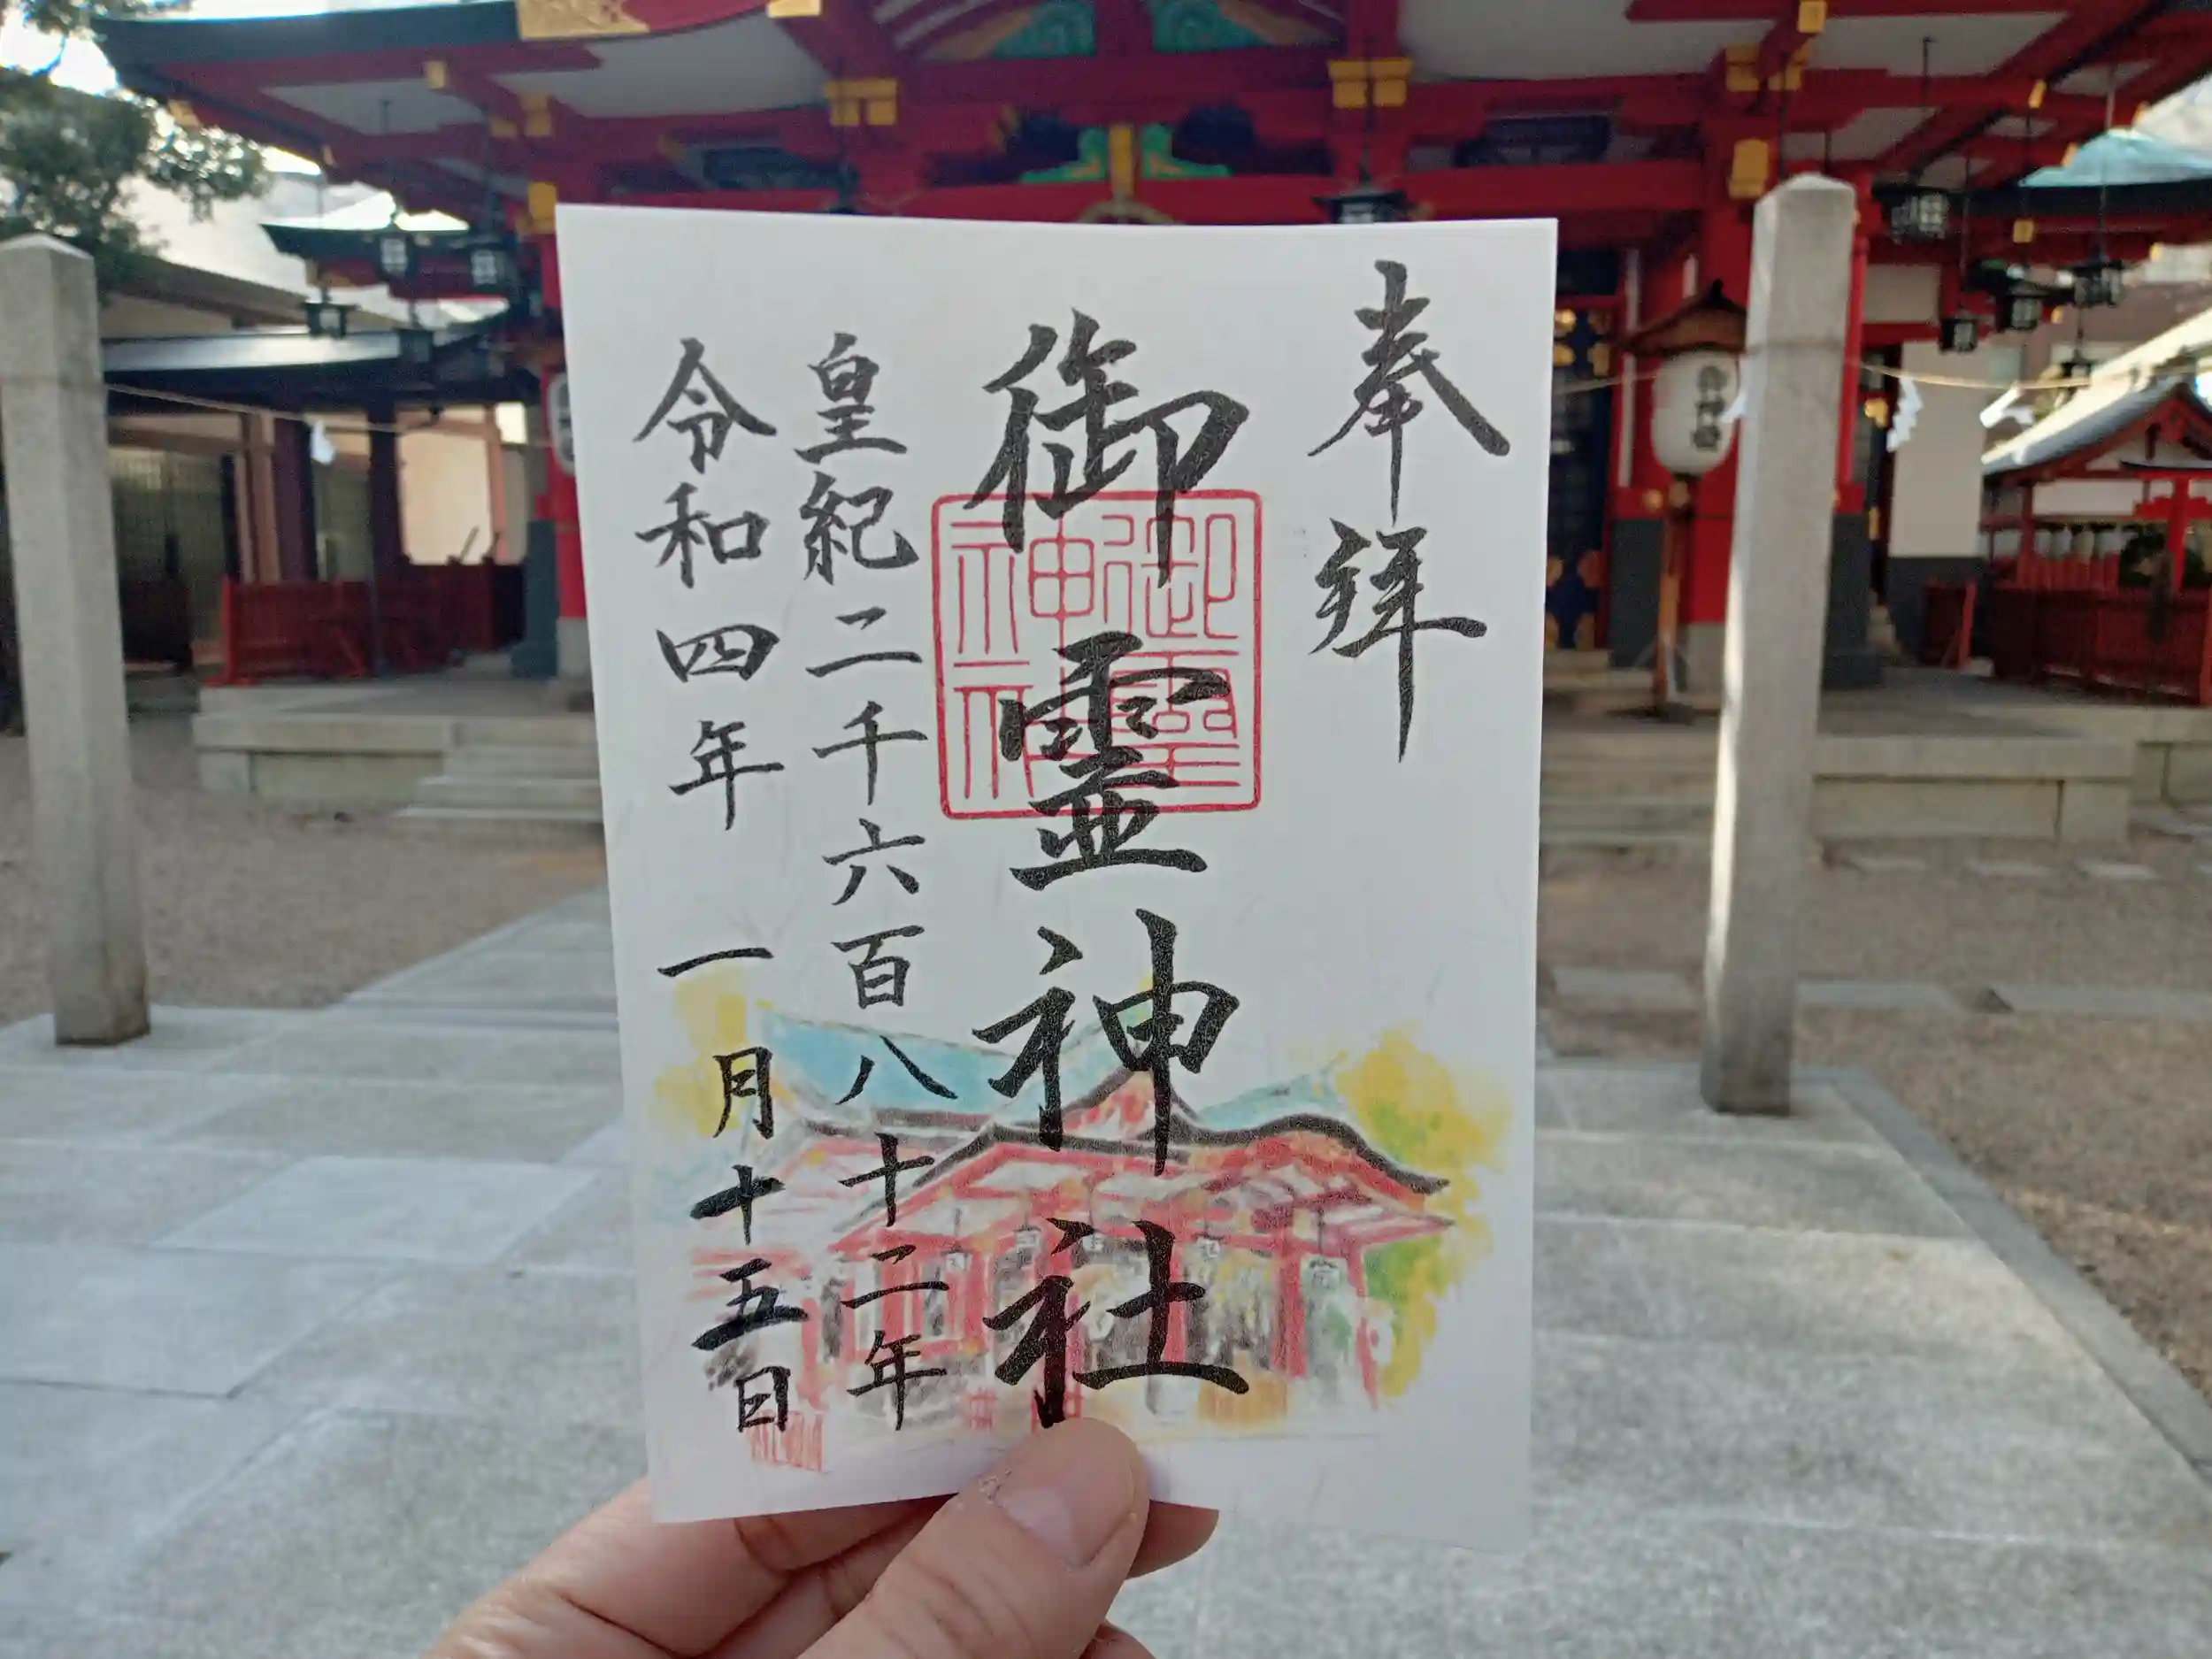 奉拝
御霊神社
御霊神社
皇紀二千六百八十二年
令和四年 一月十五日